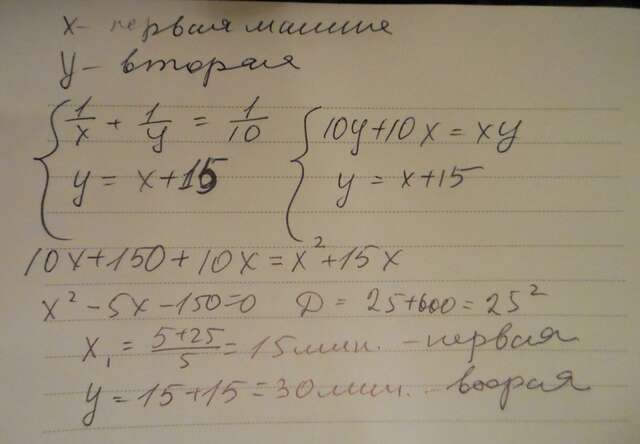 x - первая машина
y - вторая
1/x + 1/y = 1/10 10y+10x = xy
y = x+15 y = x+15
10x+150+10x = x²+15x
x²-5x-150=0 D = 25+600 = 25²
x₁ = 5+25/5 = 15 мин. - первая
y = 15+15 = 30 мин. - вторая